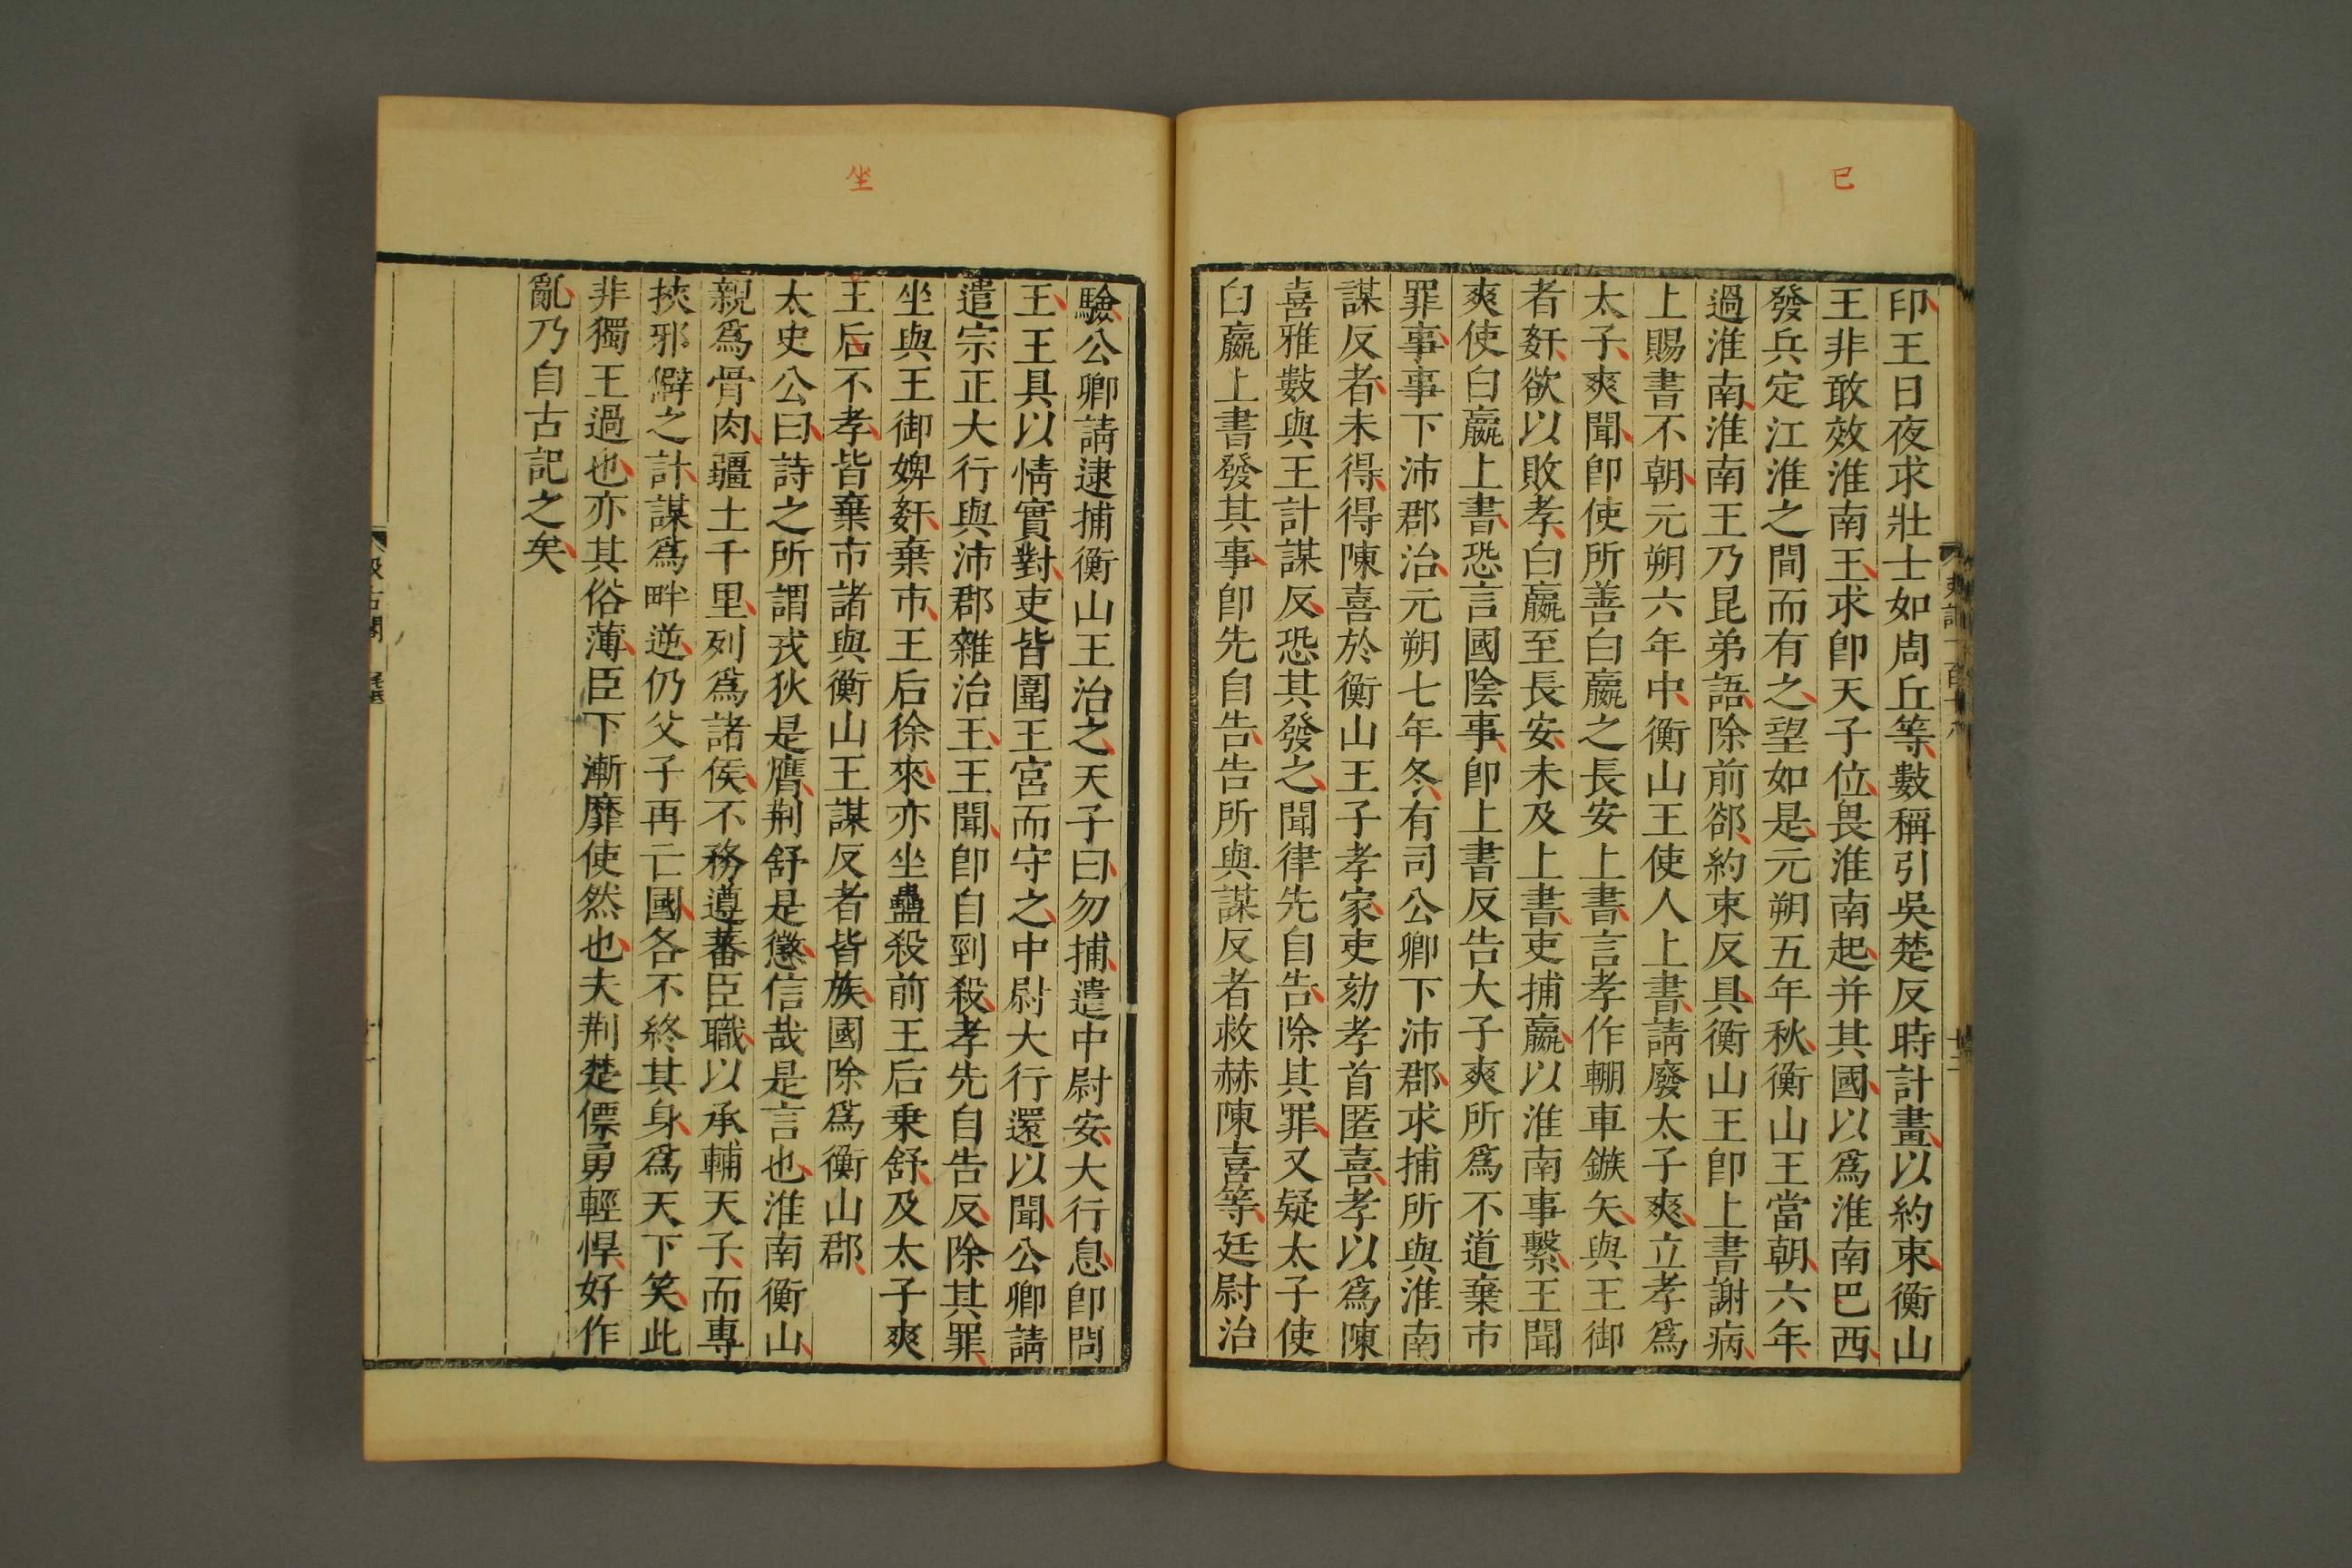 巳
印王日夜求壯士如周丘等數稱引吳楚反時計畫以約束衡山
王非敢效淮南王求卽天子位畏淮南起并其國以爲淮南巴西
發兵定江淮之間而有之望如是元朔五年秋衡山王當朝六年
過淮南淮南王乃昆弟語除前郤約束反具衡山王卽上書謝病
上賜書不朝元朔六年中衡山王使人上書請廢太子爽立孝爲
太子爽聞卽使所善白嬴之長安上書言孝作輣車鏃矢與王御
者姧欲以敗孝白嬴至長安未及上書吏捕嬴以淮南事繫王聞
爽使白嬴上書恐言國陰事卽上書反告太子爽所爲不道棄市
罪事事下沛郡治元朔七年冬有司公卿下沛郡求捕所與淮南
謀反者未得得陳喜於衡山王子孝家吏劾孝首匿喜孝以爲陳
喜雅數與王計謀反恐其發之聞律先自告除其罪又疑太子使
白嬴上書發其事卽先自告告所與謀反者救赫陳喜等廷尉治
坐
驗公卿請逮捕衡山王治之天子曰勿捕遣中尉安大行息卽問
王王具以情實對吏皆圍王宮而守之中尉大行還以聞公卿請
遣宗正大行與沛郡雜治王王聞卽自剄殺孝先自告反除其罪
坐與王御婢姧棄市王后徐來亦坐蠱殺前王后乗舒及太子爽
王后不孝皆棄市諸與衡山王謀反者皆族國除爲衡山郡
太史公曰詩之所謂戎狄是膺荆舒是懲信哉是言也淮南衡山
親爲骨肉疆土千里列爲諸侯不務遵蕃臣職以承輔天子而專
挾邪僻之計謀爲畔逆仍父子再亡國各不終其身爲天下笑此
非獨王過也亦其俗薄臣下漸靡使然也夫荆楚僄勇輕悍好作
亂乃自古記之矣